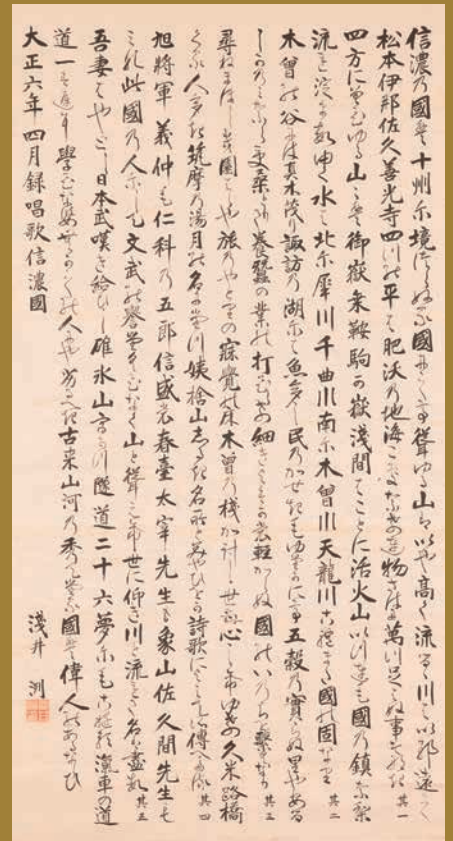 信濃乃國は十州尓境つらぬる國尓して聳ゆる山はいや高く流るゝ川はいや遠し
松本伊那佐久善光寺四つの平は肥沃乃地海こそなけれ物さはに萬つ足らぬ事そなき 其一
四方に聳ゆる山々は御嶽乗鞍駒可嶽淺間はことに活火山いつれも國乃鎮めなり
流れ淀ま須ゆく水は北尓犀川千曲川南尓木曽川天龍川これまた國の固なり 其二
木曽の谷には真木茂り諏訪の湖には魚多し民のかせきもゆたかにて五穀乃實らぬ里やある
しかのみならす桑とりて養蠶の業の打ひらけ細きよすかも軽からぬ國のいのちを繋くなり 其三
尋ねまほしき薗原や旅のやとりの寐覺の床木曽乃棧かけし世も心してゆけ久米路橋
くる人多き筑摩の湯月の名にたつ姨捨山志るき名所とみやひとか詩歌によみてそ傳へたる 其四
旭將軍義仲も仁科の五郎信盛も春臺太宰先生も象山佐久間先生も
みな此國乃人尓して文武の譽たくひなく山と聳えて世に仰き川と流れて名は盡す 其五
吾妻はやとし日本武嘆き給ひし碓氷山穿つ隧道二十六夢尓もこゆる滊車の道
道一すしに學ひなは昔の人にや劣るへき古来山河乃秀てたる國は偉人のあるならひ
大正六年四月録唱歌信濃國
淺井洌